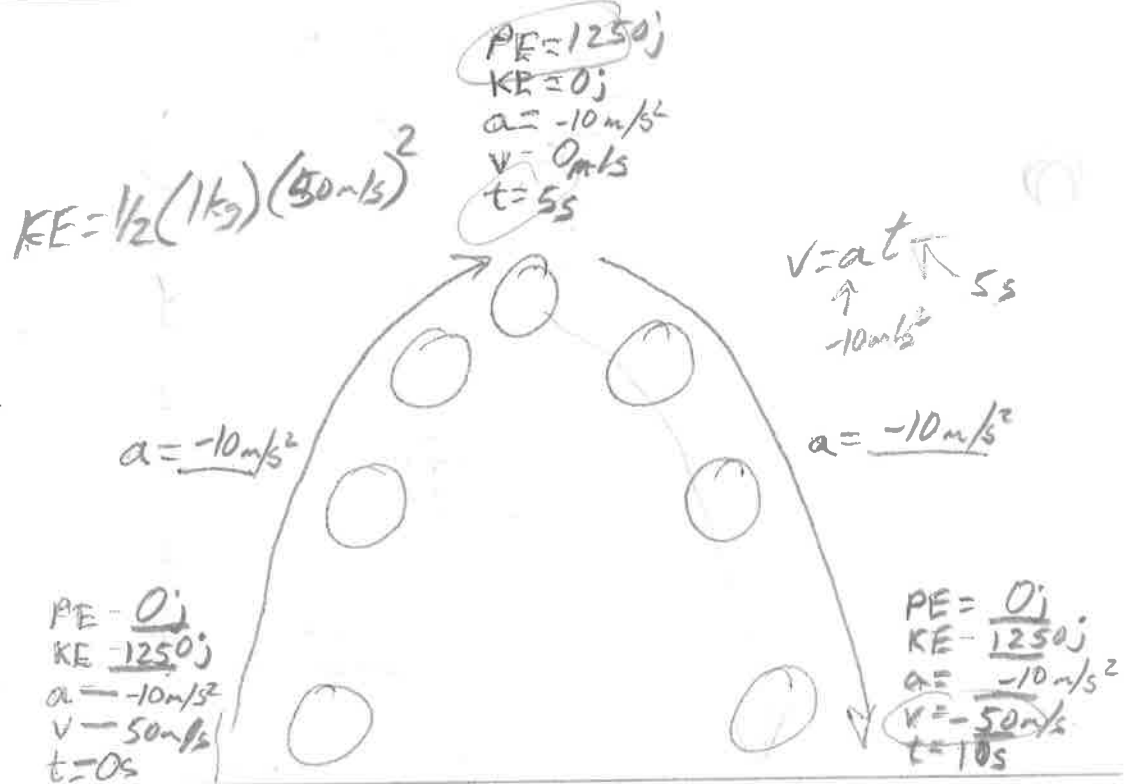 PE=1250j
KE=0j
a= -10m/s²
v- 0m/s
t= 5s
KE=½(1kg)(50m/s)²
v=at
5s
-10m/s²
a= -10m/s²
a= -10m/s²
PE- 0j
KE-1250j
a— -10m/s²
v— 50m/s
t=0s
PE= 0j
KE- 1250j
a= -10m/s²
v=-50m/s
t=10s